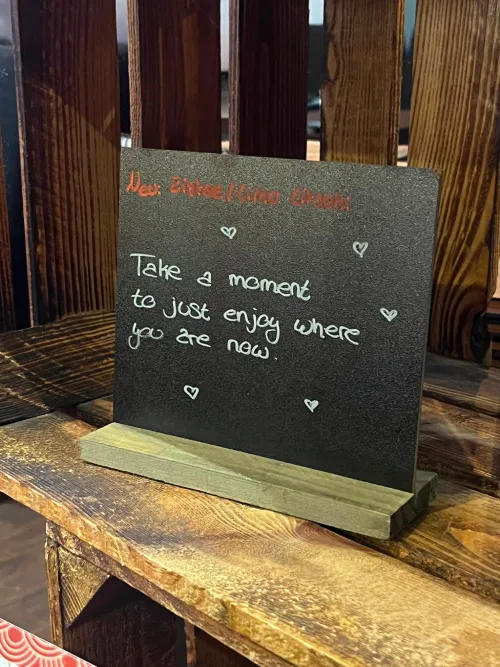 New:
Take a moment
to just enjoy where
you are now.